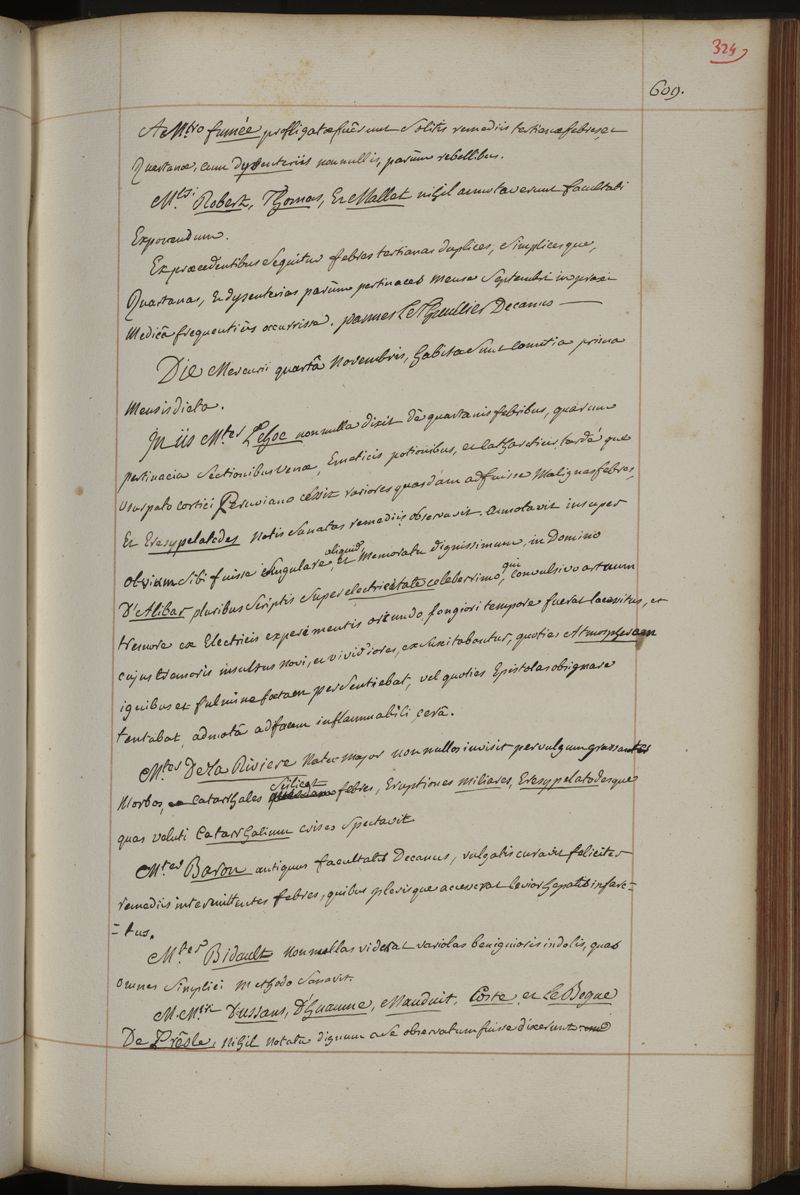 324
609.
A Mtro fumée profligatæ fuêrunt Solitis remediis tertianæ febres, et
Quartanæ, cum dyssenteriis nonnullis, parùm rebellibus.
Mtri Robert, Thomas, Et Mallet nihil annotaverunt facultati
Exponendum.
Ex præcedentibus Sequitur febres tertianas duplices, Simplicesque,
Quartanas, Et dysenterias parùm pertinaces mense Septembri in praxi
Medicâ frequentiùs occurrisse. le Thieullier Decanus —
Die Mercurii quartâ Novembris, habita Sunt Comitia prima
Mensis dicta.
In iis Mter Lehoc nonnulla dixit de quartanis febribus, quarum
pertinacia Sectionibus Venæ, Emeticis potionibus, et Catharticis, tardè que
Usurpato cortici Peruviano cessit rariores quasdam adfuisse Malignas febres,
Et Eresypelatodes Notis Sanatas remediis observavit. annotavit insuper
obviam Sibi fuisse Singulare aliquid, et Memoratu dignissimum, in Domino
D'Alibar pluribus Scriptis Super electricitate celeberrimo, qui Convulsivo artuum
tremore ex Electricis experimentis oriundo, longiori tempore fuerat lacessitus, et
cujus tremoris insultus novi, et vividiores, exSuscitabantur, quoties Atmospheram
ignibus et fulmine foetam persentiebat, vel quoties Epistolas obsignare
tentabat, admotâ ad facem inflammabili cerâ.
Mter De La Riviere Natu major nonnullos invisit per vulgum grassantes
Morbos, Catarrhales Scilicet febres, Eruptiones miliares, Eresypelatodesque
quas veluti Catarrhalium crises Spectavit
Mter Baron antiquus facultatis Decanus, vulgatis curavit feliciter
remediis intermittentes febres, quibus plerisque accesserat levior hepatis infarc=
=tus.
Mter Bidault Nonnullas viderat variolas benignioris indolis, quas
omnes Simplici Methodo Sanavit.
M. Mtri Dussans, D'huaume, Mauduit, Coste, et Le Begue
De Presle, Nihil Notatu dignum a Se observatum fuisse dixerunt